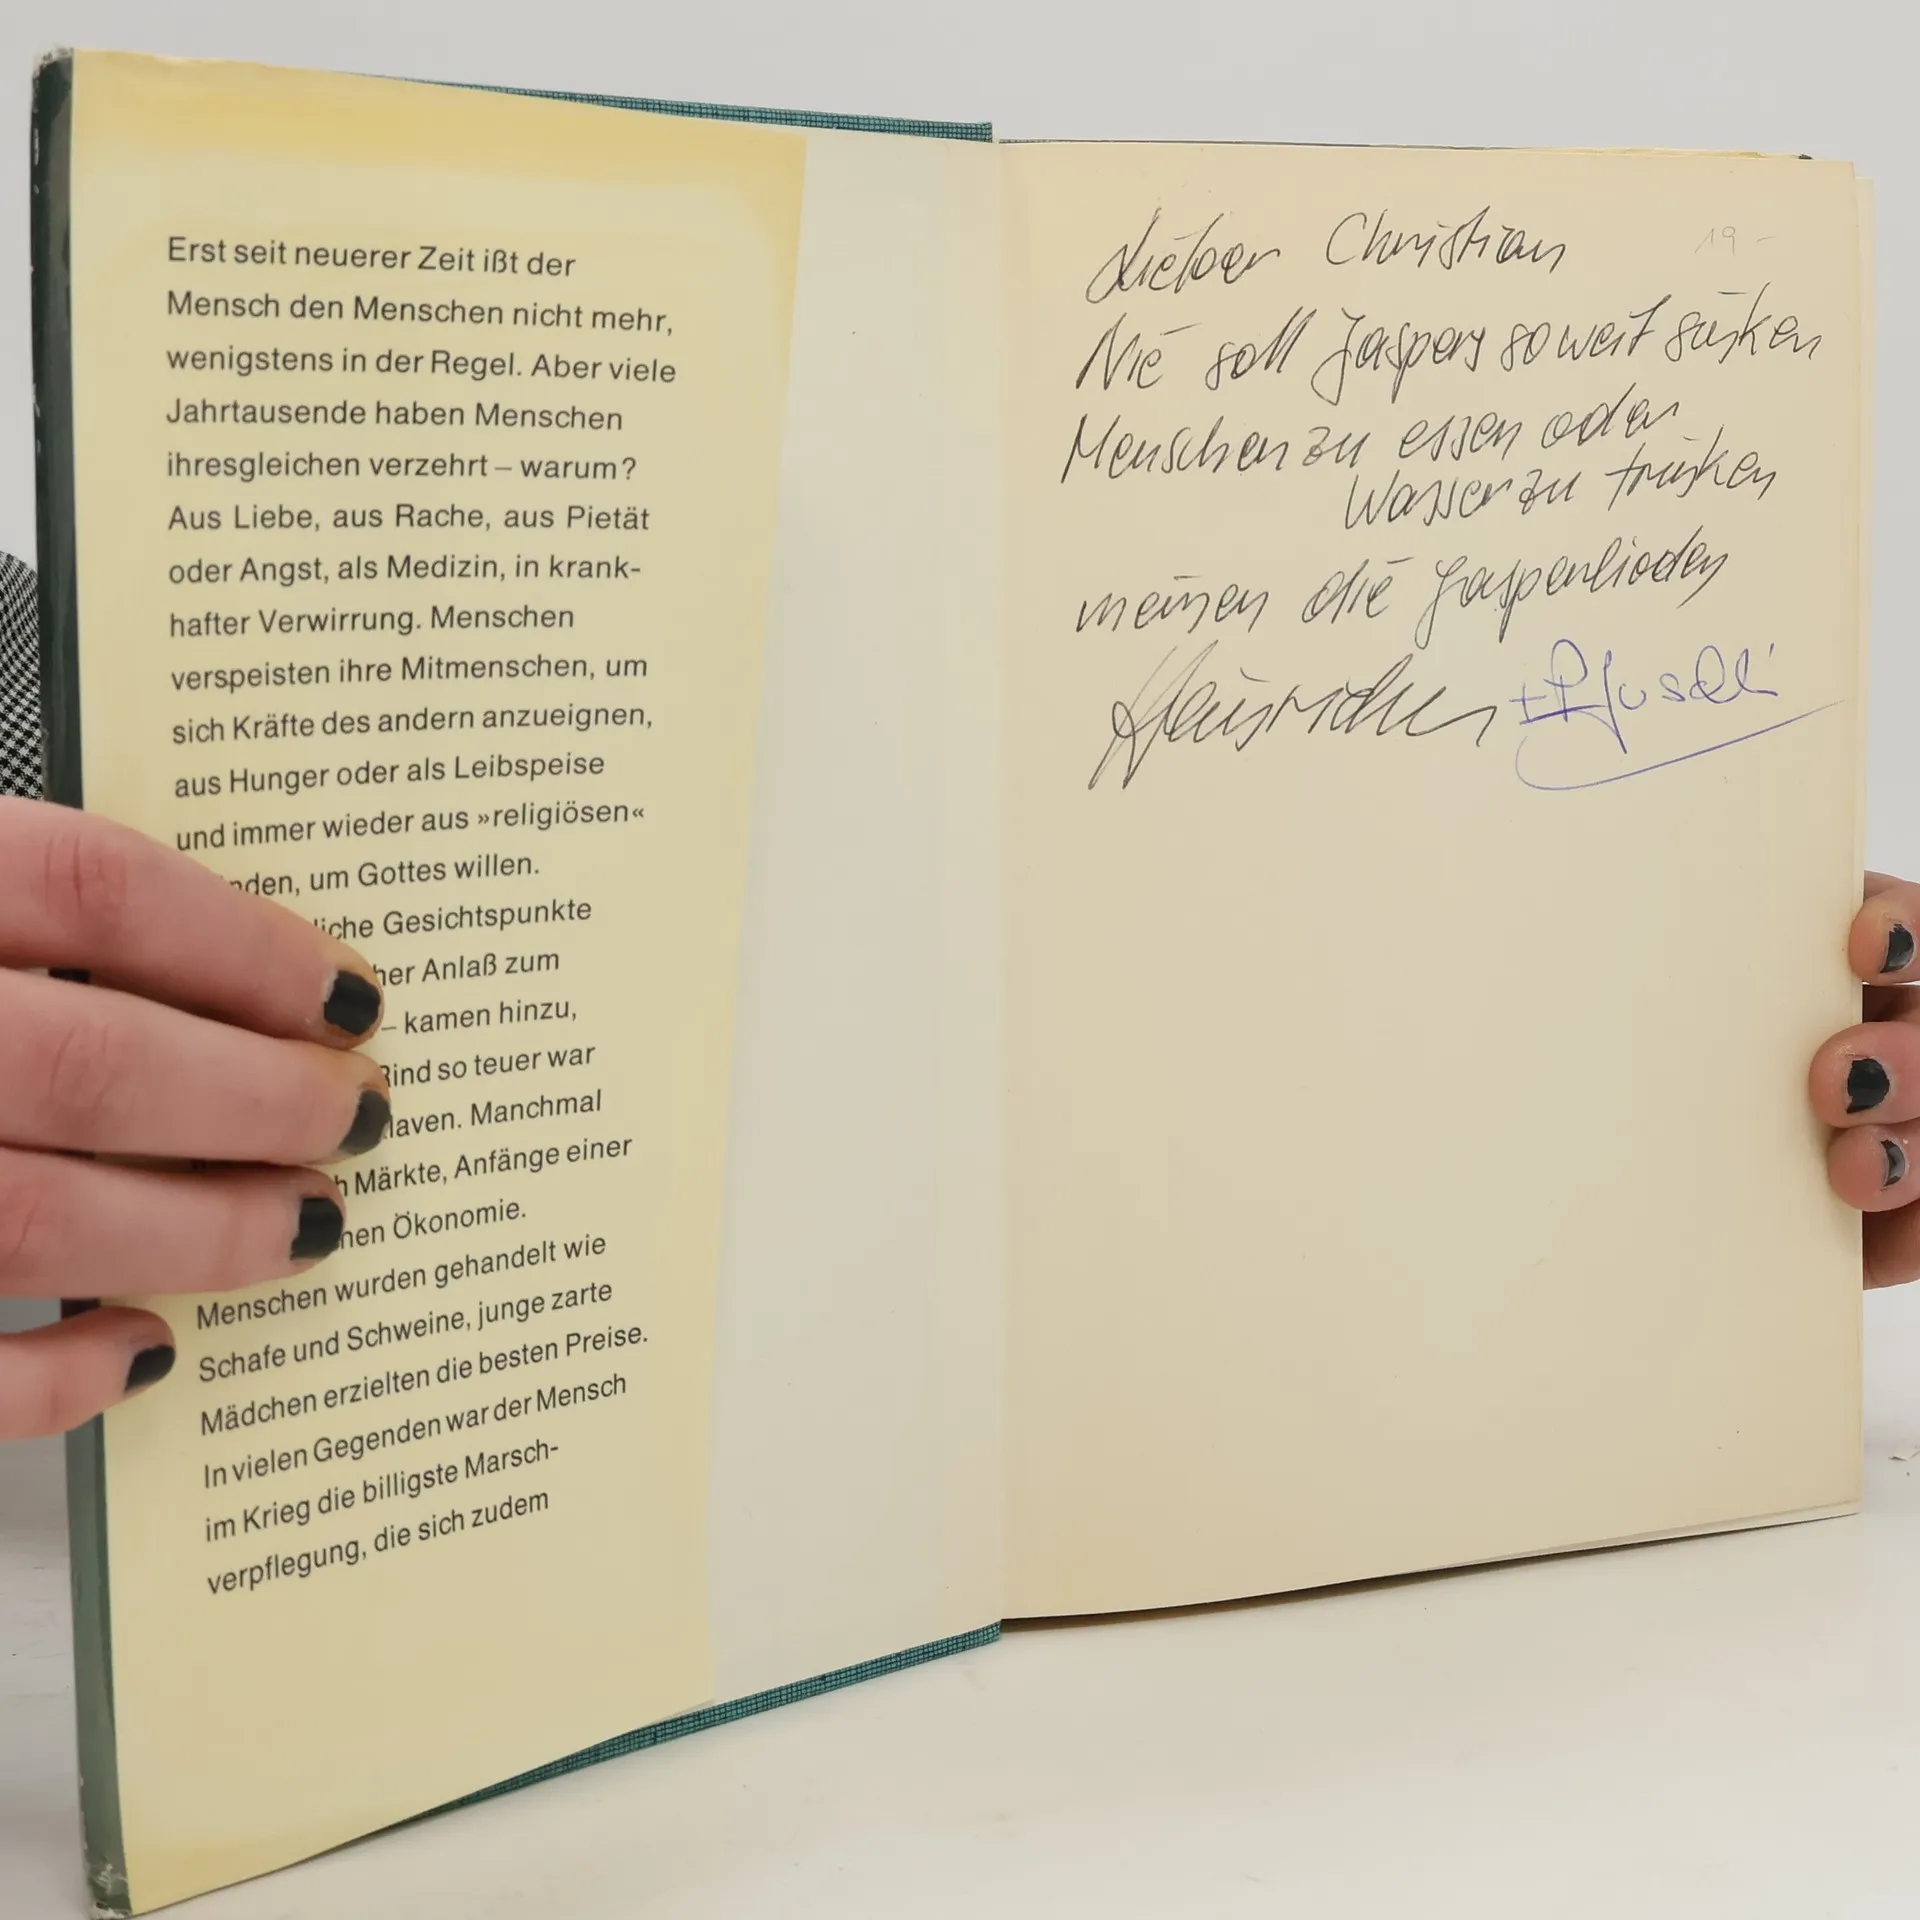 Erst seit neuerer Zeit ißt der
Mensch den Menschen nicht mehr,
wenigstens in der Regel. Aber viele
Jahrtausende haben Menschen
ihresgleichen verzehrt – warum?
Aus Liebe, aus Rache, aus Pietät
oder Angst, als Medizin, in krank-
hafter Verwirrung. Menschen
verspeisten ihre Mitmenschen, um
sich Kräfte des andern anzueignen,
aus Hunger oder als Leibspeise
und immer wieder aus »religiösen«
nden, um Gottes willen.
liche Gesichtspunkte
her Anlaß zum
– kamen hinzu,
Rind so teuer war
laven. Manchmal
h Märkte, Anfänge einer
hen Ökonomie.
Menschen wurden gehandelt wie
Schafe und Schweine, junge zarte
Mädchen erzielten die besten Preise.
In vielen Gegenden war der Mensch
im Krieg die billigste Marsch-
verpflegung, die sich zudem
Lieber Christian
19 -
Nie soll Jaspers so weit sinken
Menschen zu essen oder
Wasser zu trinken
meinen die